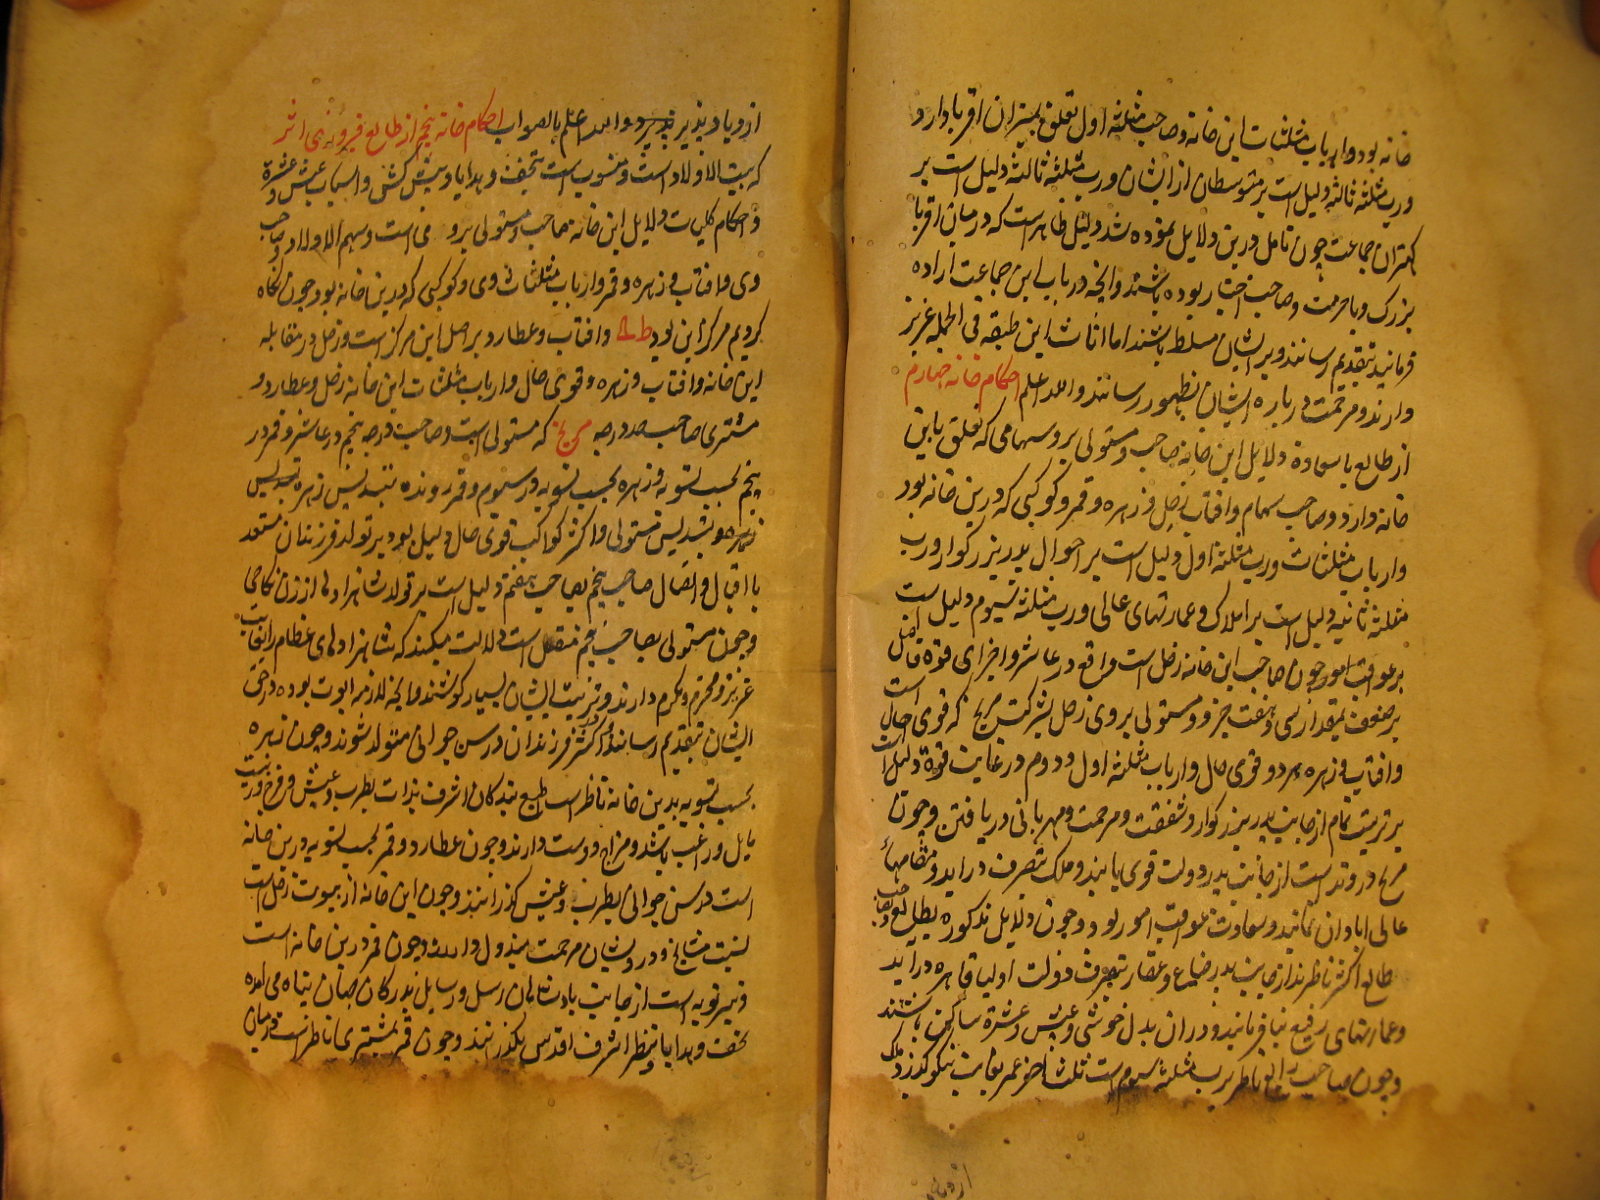 خانه بود و ارباب مثلثات این خانه و صاحب مثلثه اول تعلق به پسران اقربا دارد و
و رب مثلثه ثالثه دلیل است بر متوسطان از ایشان و رب مثلثه ثالثه دلیل است بر
کهتران جماعت چون تامل درین دلایل نموده شد دلیل ظاهر است که در میان اقربا
بزرگ و با حرمت و صاحب اختیار بوده باشند و آنچه در باب این جماعت اراده
فرمایند بتقدیم رسانند و بر ایشان مسلط باشند اما اناث این طبقه فی الجمله عزیز
دارند و مرحمت درباره ایشان بظهور رسانند والله اعلم احکام خانه چهارم
از طالع با سعادة دلایل این خانه صاحب و مستولی برو و سهامی که تعلق باین
خانه دارد و صاحب سهام و افتاب و زحل و زهره و قمر و کوکبی که درین خانه بود
و ارباب مثلثات و رب مثلثه اول دلیل است بر احوال پدر بزرگوار و رب
مثلثه ثانیه دلیل است بر املاک و عمارتهای عالی و رب مثلثه سیوم دلیل است
بر عواقب امور چون صاحب این خانه زحل است واقع در عاشر و اجزای قوه فاضل است
بر ضعف بمقدار سی و هفت جزو و مستولی بر وی زحل بشرکت مریخ که قوی حال است
و افتاب و زهره هر دو قوی حال و ارباب مثلثه اول و دوم در غایت قوة دلیل است
بر تربیت تمام از جانب پدر بزرکوار و شفقت و مرحمت و مهربانی دریافتن و چون
مریخ در وتد است از جانب پدر دولت قوی یابند و ملک بتصرف در اید و مقامهاء
عالی ابادان نمایند و سعادت عواقب امور بود و چون دلایل مذکوره بطالع و صاحب
طالع اکثر ناظرند از جانب پدر ضیاع و عقار بتصرف دولت اولیا قاهره در آید
و عمارتهای رفیع بنا فرمایند و در ان بدل خوشی و عیش و عشرة ساکن باشند
و چون صاحب رابع ناظر برب مثلثه سیوم است ثلث اخر عمر بغایت نیکو کذرد و ملک
از دیاد
از دیاد پذیر والله اعلم بالصواب احکام خانه پنجم از طالع فیروزی اثر
که بیت الاولاد است و منسوب است بتحف و هدایا و پیش کش و اسباب عیش و عشرة
و احکام کلیات دلایل این خانه صاحب و مستولی برو وی است و سهم الاولاد و صاحب
وی و افتاب و زهره و قمر و ارباب مثلثات وی و کوکبی که درین خانه بود چون نکاه
کردیم مرکز این بود و افتاب و عطارد بر اصل این مرکز است و زحل در مقابله
این خانه و افتاب و زهره و قوی حال و ارباب مثلثات این خانه زحل و عطارد و
مشتری صاحب صد درجه مریخ که مستولی است و صاحب درجه پنجم در عاشر و قمر در
پنجم بحسب تسویه و زهره بحسب تسویه در سیوم و قمر رونده بتسدیس زهره
و بتسدیس مستولی و اکثر کواکب قوی حال دلیل بود بر تولد فرزندان مستعد
با اقبال و اتصال صاحب پنجم بصاحب هفتم دلیل است بر تولد شاهزاده از زن نکاحی
و چون مستولی بصاحب پنجم متصل است دلالت میکند که شاهزاد های عظام را بغایت
عزیز و محترم و مکرم دارند و تربیت ایشان بسیار کوشند و آنچه لازمه ابوت بوده در حق
ایشان بتقدیم رسانند و اکثر فرزندان در سن جوانی متولد شوند و چون زهره
بحسب تسویه بدین خانه ناظر است طبع بندکان اشرف بذات بطرب و عیش و فرح و زینت
مایل و راغب باشد و مزاح دوست دارند و چون عطارد و قمر بحسب تسویه درین خانه
است در سن جوانی بطرب و عیش کذرانند و چون این خانه از بیوت زحل است
نسبت مشایخ و درویشان مرحمت مبذول دارند و چون قمر درین خانه است
و نیر نوبه است از جانب پادشاهان رسل و رسایل بدرکاه جهان پناه می امده
تحفت و هدایا بنظر اشرف اقدس بکذرانند و چون قمر بمشتری ناظر است در میان